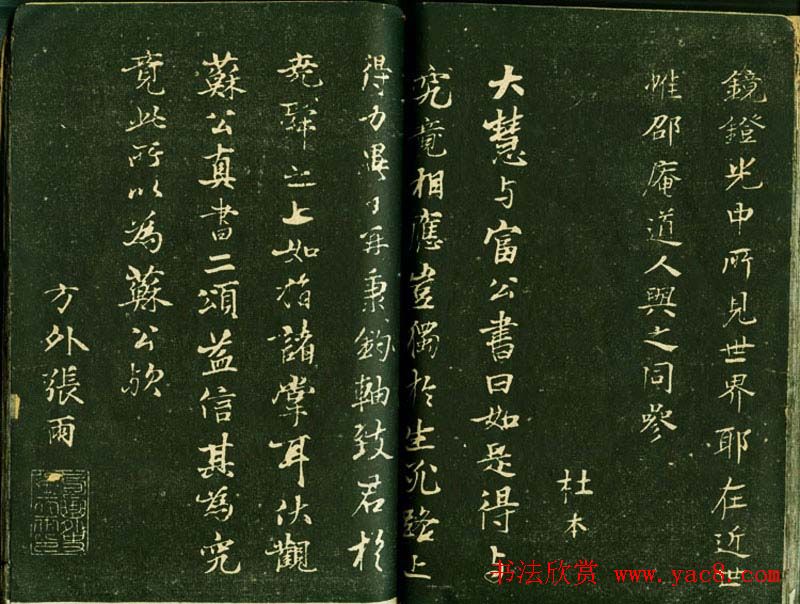 鏡鐙光中所見世界耶在近世
惟邵庵道人與之同參
杜本
大慧与富公書曰如是得与
究竟相應豈獨於生死路上
得力異日再秉鈞軸致君於
堯舜之上如指諸掌耳伏觀
蘇公真書二頌益信其為究
竟此所以為蘇公歟
方外張雨
书法欣赏 www.yac8.com